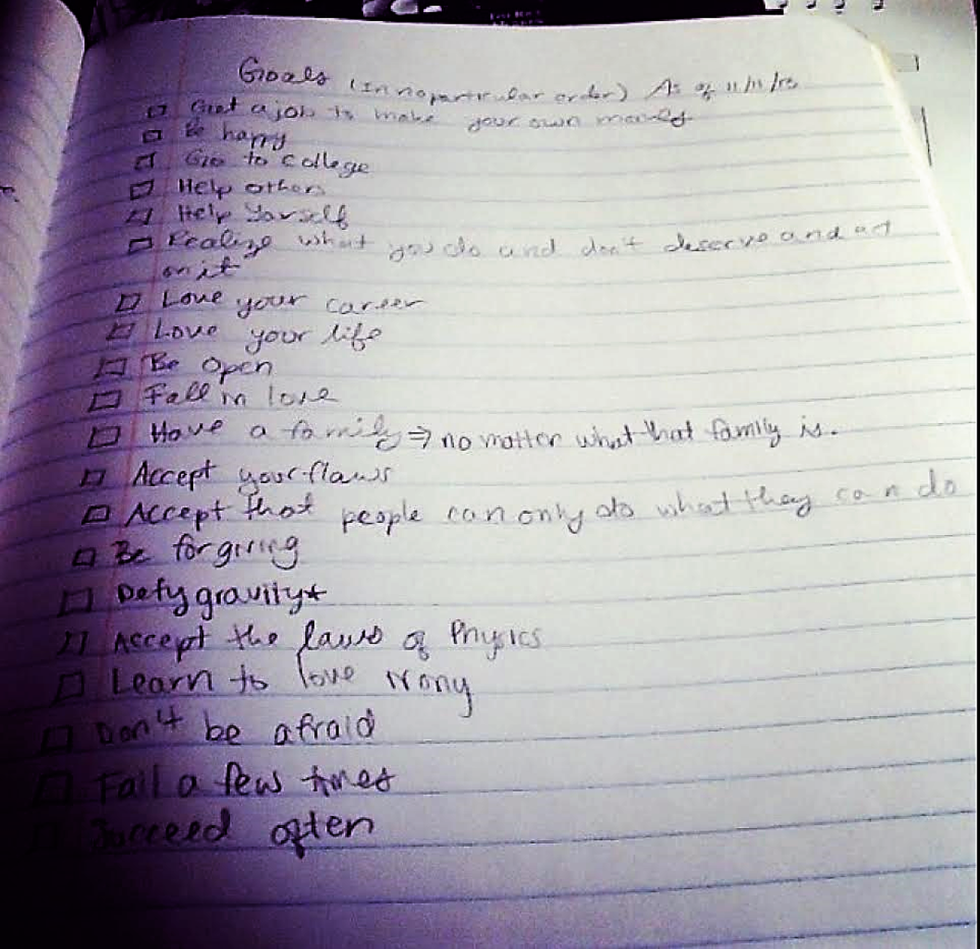 Goals (In no particular order) As of 11/11/13
Get a job to make your own money
Be happy
Go to college
Help others
Help Yourself
Realize what you do and don't deserve and act
on it
Love your career
Love your life
Be open
Fall in love
Have a family ⇒ no matter what that family is.
Accept your flaws
Accept that people can only do what they can do
Be forgiving
Defy gravity*
Accept the laws of Physics
Learn to love irony
Don't be afraid
Fail a few times
Succeed often